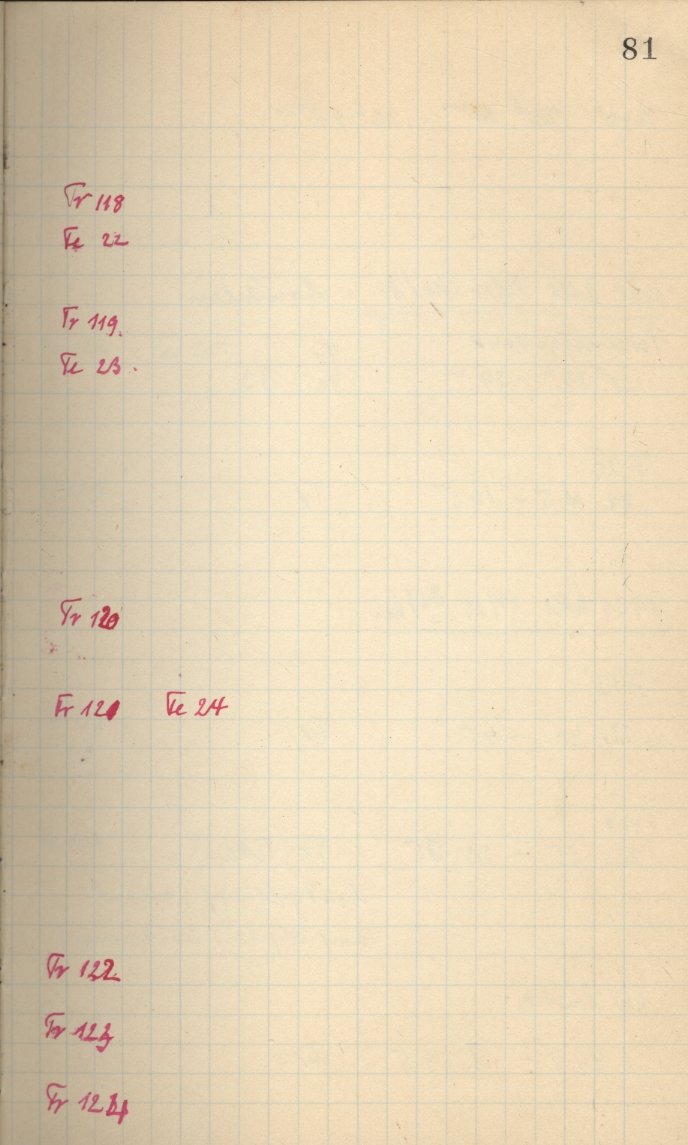 81
Tr 118
Te 22
Tr 119.
Te 23.
Tr 120
Tr 121 Te 24
Tr 122
Tr 123
Tr 124